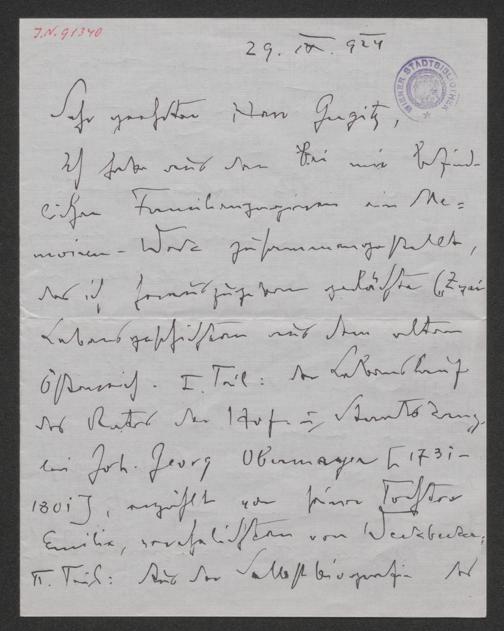 J.N. 91340
29. IX. 924
WIENER STADTBIBLIOTHEK
Sehr geehrter Herr Gugitz,
Ich habe aus den bei mir befind-
lichen Familienpapieren ein Me=
moiren-Werk zusammengestellt,
das ich herauszugeben gedächte („Zwei
Lebensgeschichten aus dem alten
Österreich. I. Teil: der Lebenslauf
des Rates der Hof- u. Staatskanz-
lei Joh. Georg Obermayer [1731-
1801], erzählt von seiner Tochter
Emilie, verehelichten von Weckbecker;
II. Teil: Aus der Selbstbiografie des